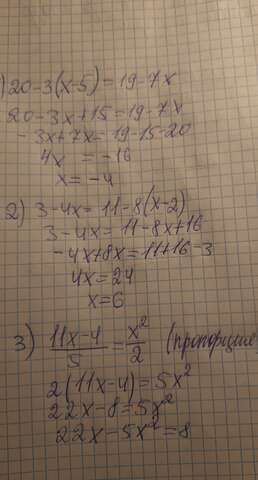 1) 20-3(x-5)=19-7x
20-3x+15=19-7x
-3x+7x=19-15-20
4x = -16
x = -4
2) 3-4x=11-8(x-2)
3-4x=11-8x+16
-4x+8x=11+16-3
4x=24
x=6
3) (11x-4)/5 = x²/2 (пропорция)
2(11x-4)=5x²
22x-8=5x²
22x-5x²=8